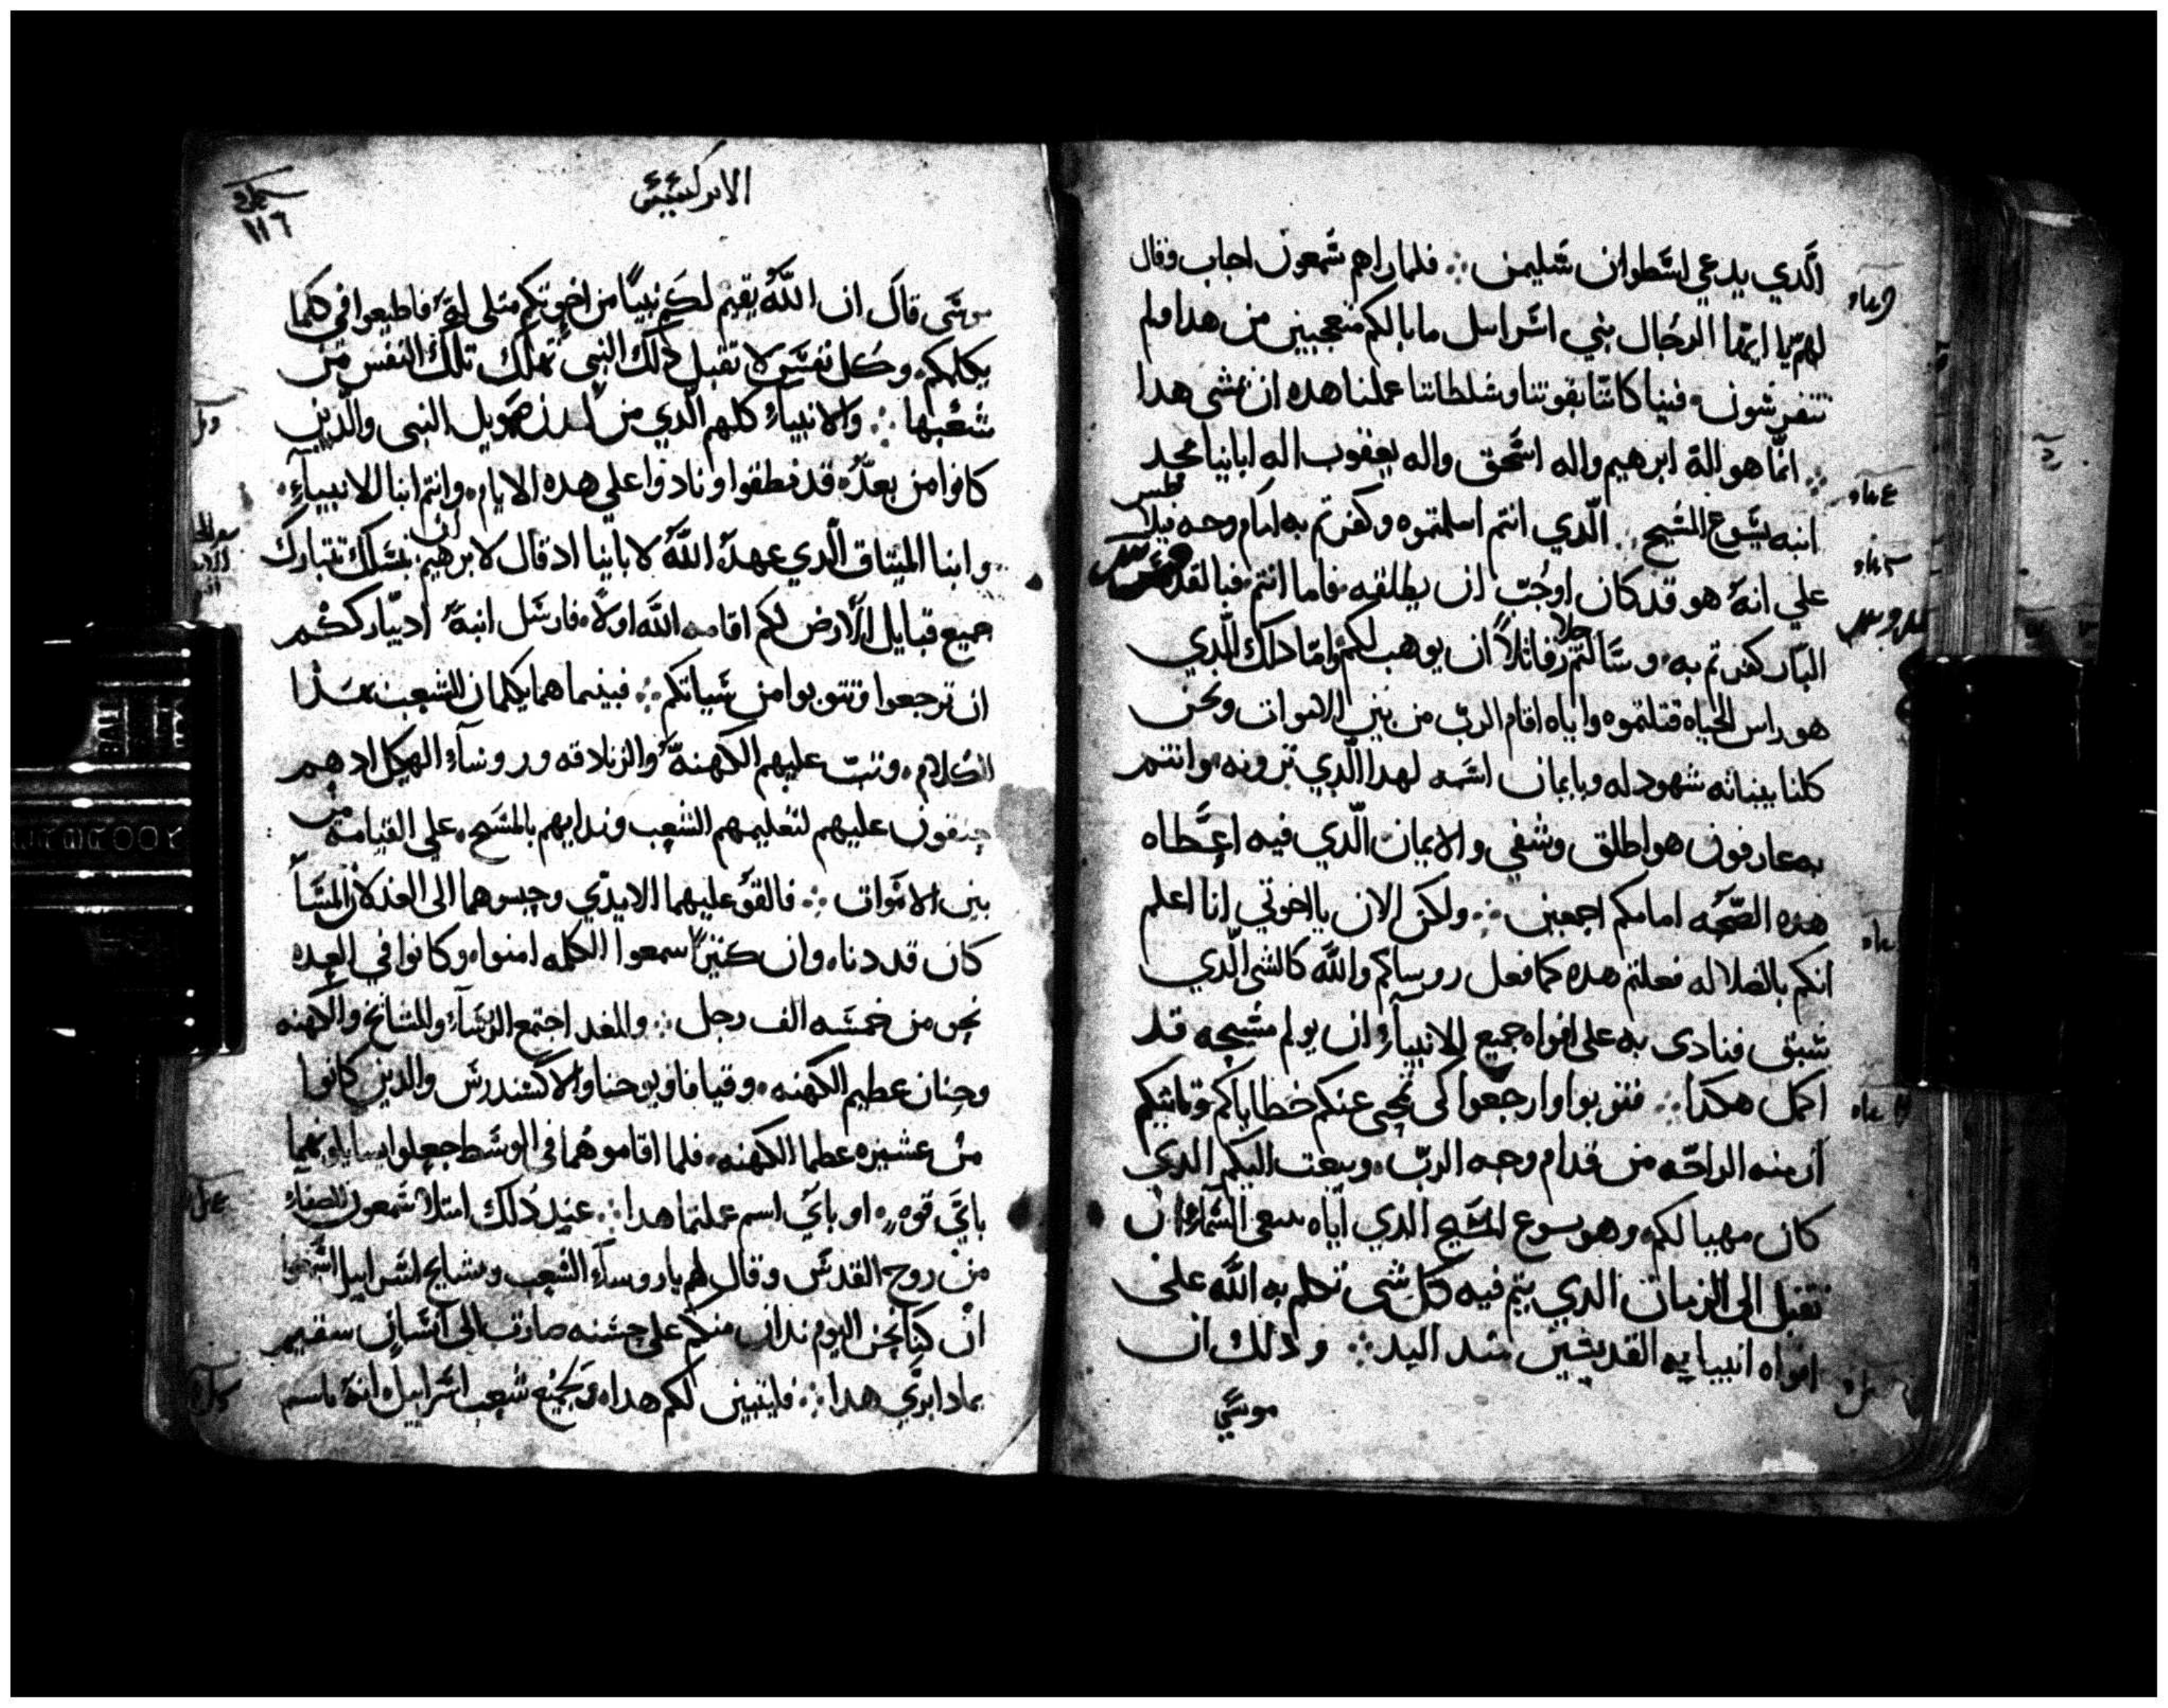 الَّدي يدعي اسَّطوان سَليمن ⁘ فلما راهم شَمعون اجاب وقال
لهم يا ايها الرجال بني اسَرايل ما بالكم متعجبين من هدا ولم
تتفرسَون فينيا كانّنا بقوتنا وسَلطاننا عملنا هده ان نمشي هدا
⁘ انما هو الة ابرهيم واله اسَحق واله يعقوب اله اباينا مجد
ابنه يسَوع المسَيح ⁘ الَّدي انتم اسلمتموه وكفرتم به امام وجه فيلا
طس
علي انهُ هو قد كان اوجَبّ ان يطلقه فاما انتم فبالقدوس
البّار كفرتم به وسَالتم رجلا قاتلاً ان يوهب لكم وامّا داك الَّدي
هو راس الحياه قتلتموه واياه اقام الربّ من بين الاموات ونحن
كلنا بيناته شهود له وبايمان اسَمه لهدا الَّدي ترونه وانتم
به عارفون هو اطلق وشفي والايمان الَّدي فيه اعَطاه
هده الصّحَه امامكم اجمعين ⁘ ولكن الان يا اخوتي انا اعلم
انكم بالضلاله فعلتم هده كما فعل روساكم والله كالشي الَّدي
سَبق فنادى به على افواه جميع الانبيآء ان يولم مسَيحه قد
اكمل هكدا ⁘ فتوبوا وارجعوا كي تمحى عنكم خطاياكم وتاتيكم
ازمنه الراحَه من قدام وجه الربّ ويبعت اليكم الدي
كان مهيا لكم وهو يسوع المسَيح الدي اياه ينبغي السَّماء ان
تقبل الى الزمان الدي يتم فيه كل شي تكلم به اللَّه على
افواه انبيايه القديسَين مند البد ⁘ ودلك ان
موسَي
الابركسَيسَ
١١٦
موسَى قالَ ان اللَّهُ يقيم لكم نبيًا من اخوتكم متلي لهُ فاطيعوا في كلما
يكلمكم وكل نفسَ لا تقبل دلك النبي تهلك تلك النفس من
شعبها ⁘ والانبياء كلهم الَّدي من لدن صمويل النبي والَّدين
كانوا من بعدُه قد نطقوا ونادوا على هده الايام وانتم ابنا الانبيآء
وابنا الميتاق الَّدي عهدهُ اللَّهُ لاباينا اد قال لابرهيم ان بنسَلك تتبارك
جميع قبايل الأرض لكم اقامه اللَّه اولاً فارسَل ابنهُ ادٍ يبارككُم
ان ترجعوا وتتوبوا من سَياتكم ⁘ فبينما هما يكلمان للشعب بهَدا
الكلام وتبت عليهم الكهنهَ والزنادقه وروسآء الهيكل اد هم
حنقون عليهم لتعليمهم الشعب وندايهم بالمسَيح على القيامه من
بين الاموات ⁘ فالقو عليهما الايدّي وحبسوهما الى الغد لان المسَآ
كان قد دنا وان كتيرًا سمعوا الكلمه امنوا وكانوا في العده
نحو من خمسَه الف رجل ⁘ وللغد اجتمع الروسَآء والمشايخ والكهنه
وحنان عطيم الكهنه وقيافا ويوحنا والاكسَندرسَ والدين كانوا
من عشيره عطما الكهنه فلما اقاموهُما في الوسَط جعلوا يسايلونهما
بائَي قوه او بائَي اسم عملتما هدا ⁘ عند دُلك امتلا شَمعون الصفاء
منْ روح القدسَ وقال لهم يا روسآء الشعب ومشايخ اسَرايل اسَمعوا
ان كنا نحن اليوم ندان منكم على حسَنه صارت الى انسَان سقيم
بمادا ابري هدا ⁘ فليتبين لكم هدا ولجميع شعب اسَراييل انهُ باسم